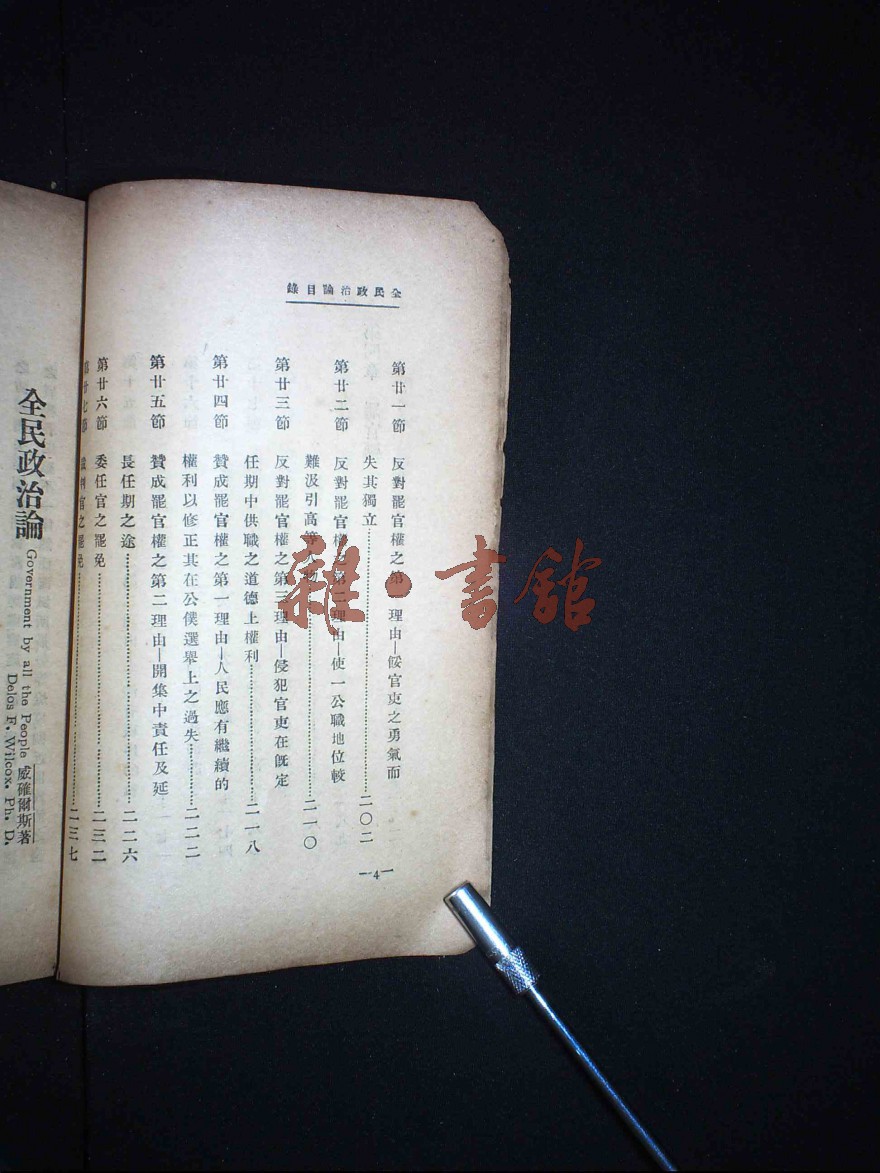 全民政治論目錄
第廿一節　反對罷官權之第一理由—餒官吏之勇氣而
失其獨立……二〇二
第廿二節　反對罷官權之第二理由—使一公職地位較
難汲引高等人物……二一〇
第廿三節　反對罷官權之第三理由—侵犯官吏在旣定
任期中供職之道德上權利……二一八
第廿四節　贊成罷官權之第一理由—人民應有繼續的
權利以修正其在公僕選舉上之過失……二二二
第廿五節　贊成罷官權之第二理由—開集中責任及延
長任期之途……二二六
第廿六節　委任官之罷免……二三二
第廿七節　裁判官之罷免……二三七
—4—
全民政治論
Government by all the People 威確爾斯著
Delos F. Wilcox, Ph. D.
雜·書館